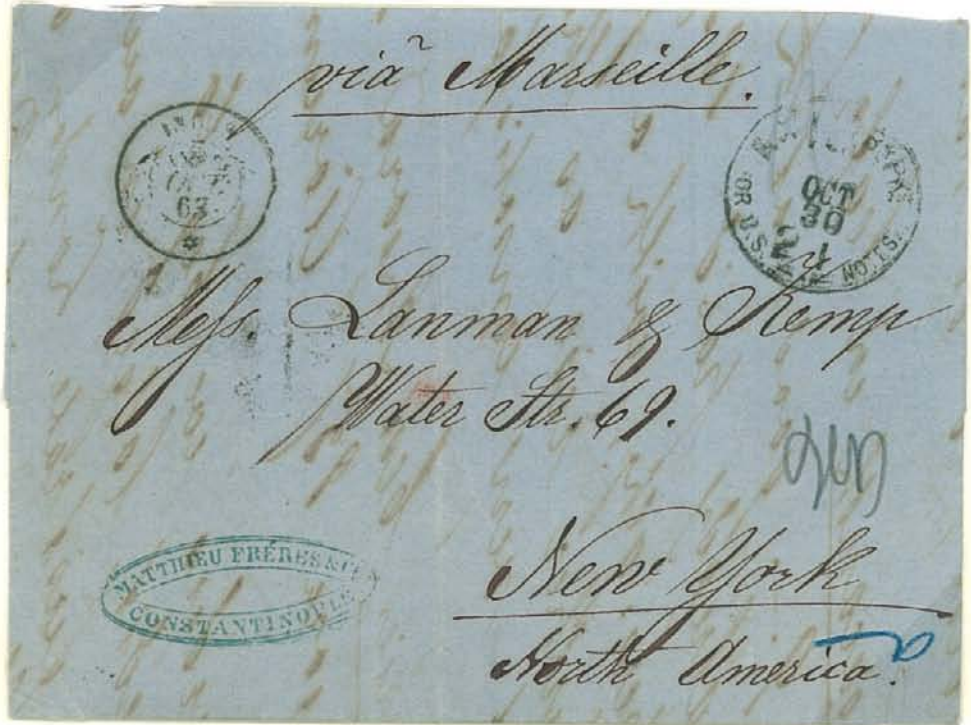 viã Marseille.
OCT
63
N. YORK AM. PKT
OCT
30
21
OR U.S. NOTES.
Mess. Lanman & Kemp
Water Str. 69.
New York
North America.
MATTHIEU FRÉRES & Cie
CONSTANTINOPLE